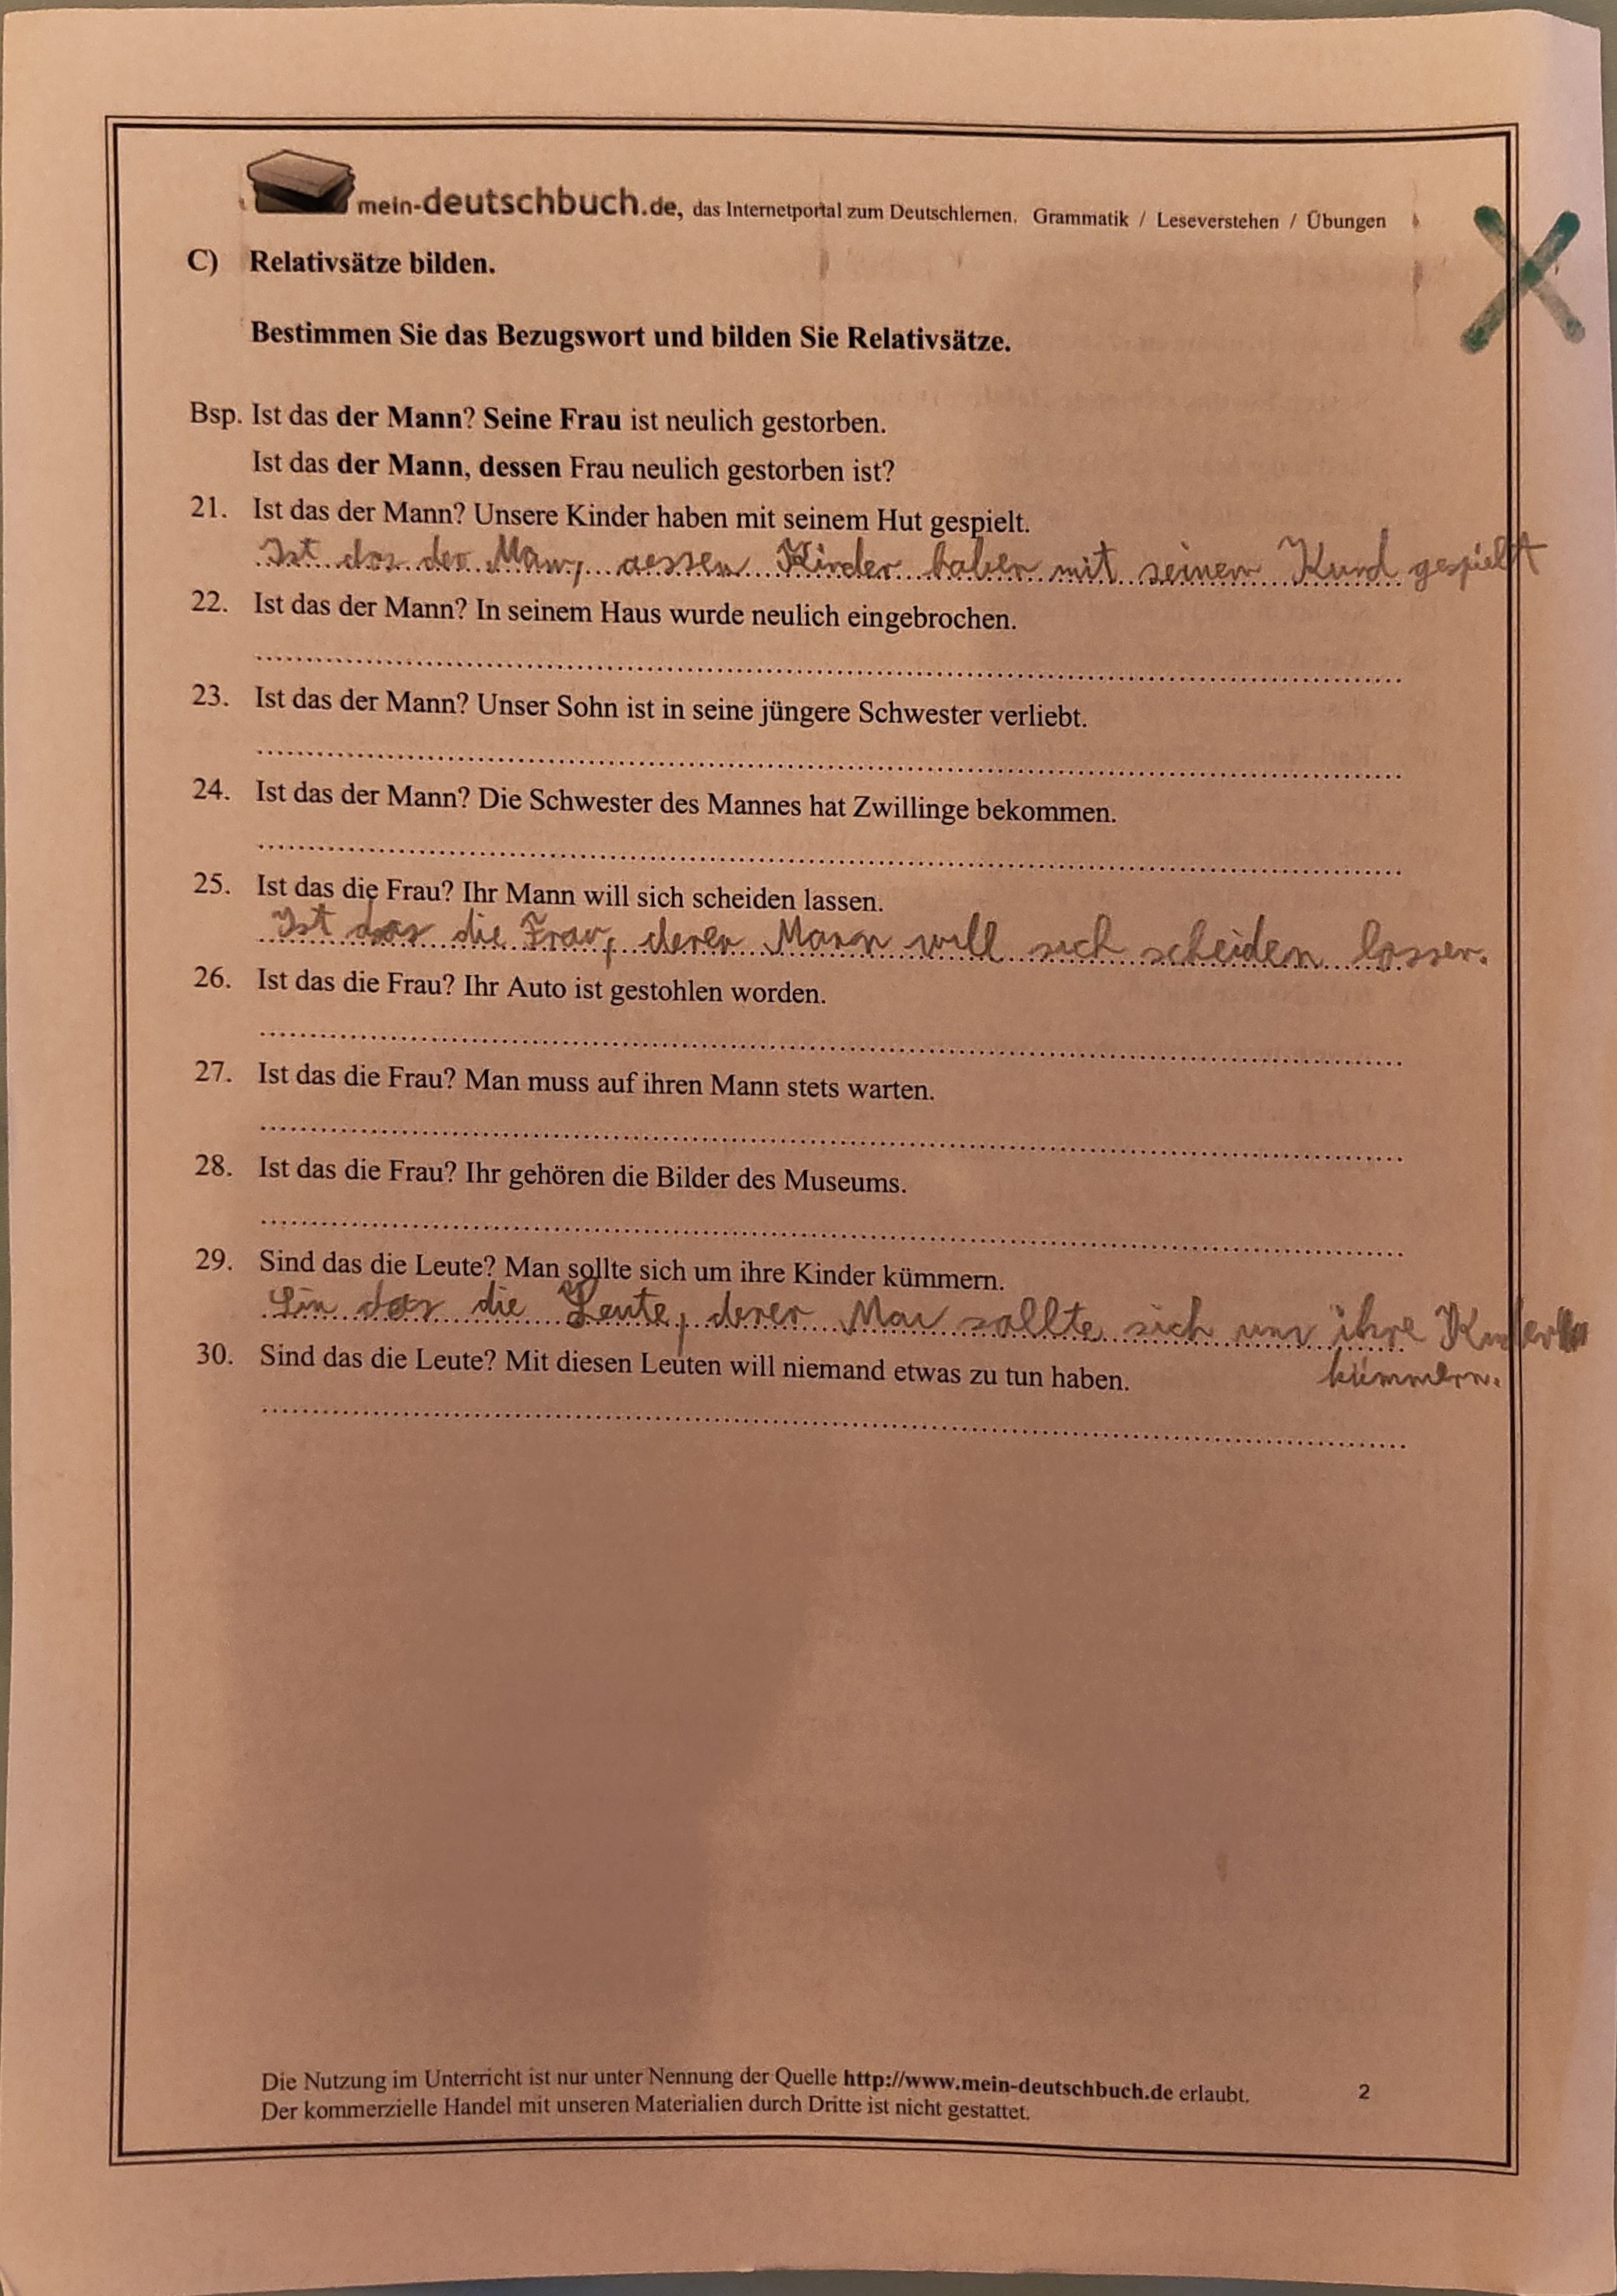 mein-deutschbuch.de, das Internetportal zum Deutschlernen. Grammatik / Leseverstehen / Übungen
C) Relativsätze bilden.
Bestimmen Sie das Bezugswort und bilden Sie Relativsätze.
Bsp. Ist das der Mann? Seine Frau ist neulich gestorben.
Ist das der Mann, dessen Frau neulich gestorben ist?
21. Ist das der Mann? Unsere Kinder haben mit seinem Hut gespielt.
Ist das der Mann, dessen Kinder haben mit seinem gespielt
22. Ist das der Mann? In seinem Haus wurde neulich eingebrochen.
23. Ist das der Mann? Unser Sohn ist in seine jüngere Schwester verliebt.
24. Ist das der Mann? Die Schwester des Mannes hat Zwillinge bekommen.
25. Ist das die Frau? Ihr Mann will sich scheiden lassen.
Ist das die Frau, deren Mann will sich scheiden lassen.
26. Ist das die Frau? Ihr Auto ist gestohlen worden.
27. Ist das die Frau? Man muss auf ihren Mann stets warten.
28. Ist das die Frau? Ihr gehören die Bilder des Museums.
29. Sind das die Leute? Man sollte sich um ihre Kinder kümmern.
das die Leute, deren sollte sich um ihre
30. Sind das die Leute? Mit diesen Leuten will niemand etwas zu tun haben.
kümmern.
Die Nutzung im Unterricht ist nur unter Nennung der Quelle http://www.mein-deutschbuch.de erlaubt.
Der kommerzielle Handel mit unseren Materialien durch Dritte ist nicht gestattet.
2